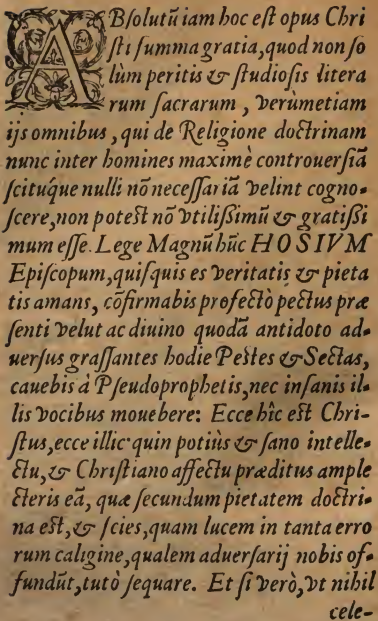 ABſolutũ iam hoc eſt opus Chri
ſti ſumma gratia, quod non ſo
lùm peritis & ſtudioſis litera
rum ſacrarum, verùmetiam
ijs omnibus, qui de Religione doctrinam
nunc inter homines maximè controuerſiã
ſcituq́ue nulli nõ neceſſariã velint cogno-
ſcere, non poteſt nõ vtiliſſimũ & gratiſſi
mum eſſe. Lege Magnũ hũc HOSIVM
Epiſcopum, quiſquis es veritatis & pieta
tis amans, cõfirmabis profectò pectus præ
ſenti velut ac diuino quodã antidoto ad-
uerſus graſſantes hodie Peſtes & Sectas,
cauebis à Pſeudoprophetis, nec inſanis il-
lis vocibus mouebere: Ecce hîc eſt Chri-
ſtus, ecce illic: quin potiùs & ſano intelle-
ctu, & Chriſtiano affectu præditus ample
cteris eã, quæ ſecundum pietatem doctri-
na eſt, & ſcies, quam lucem in tanta erro
rum caligine, qualem aduerſarij nobis of-
fundũt, tutò ſequare. Et ſi verò, vt nihil
cele-